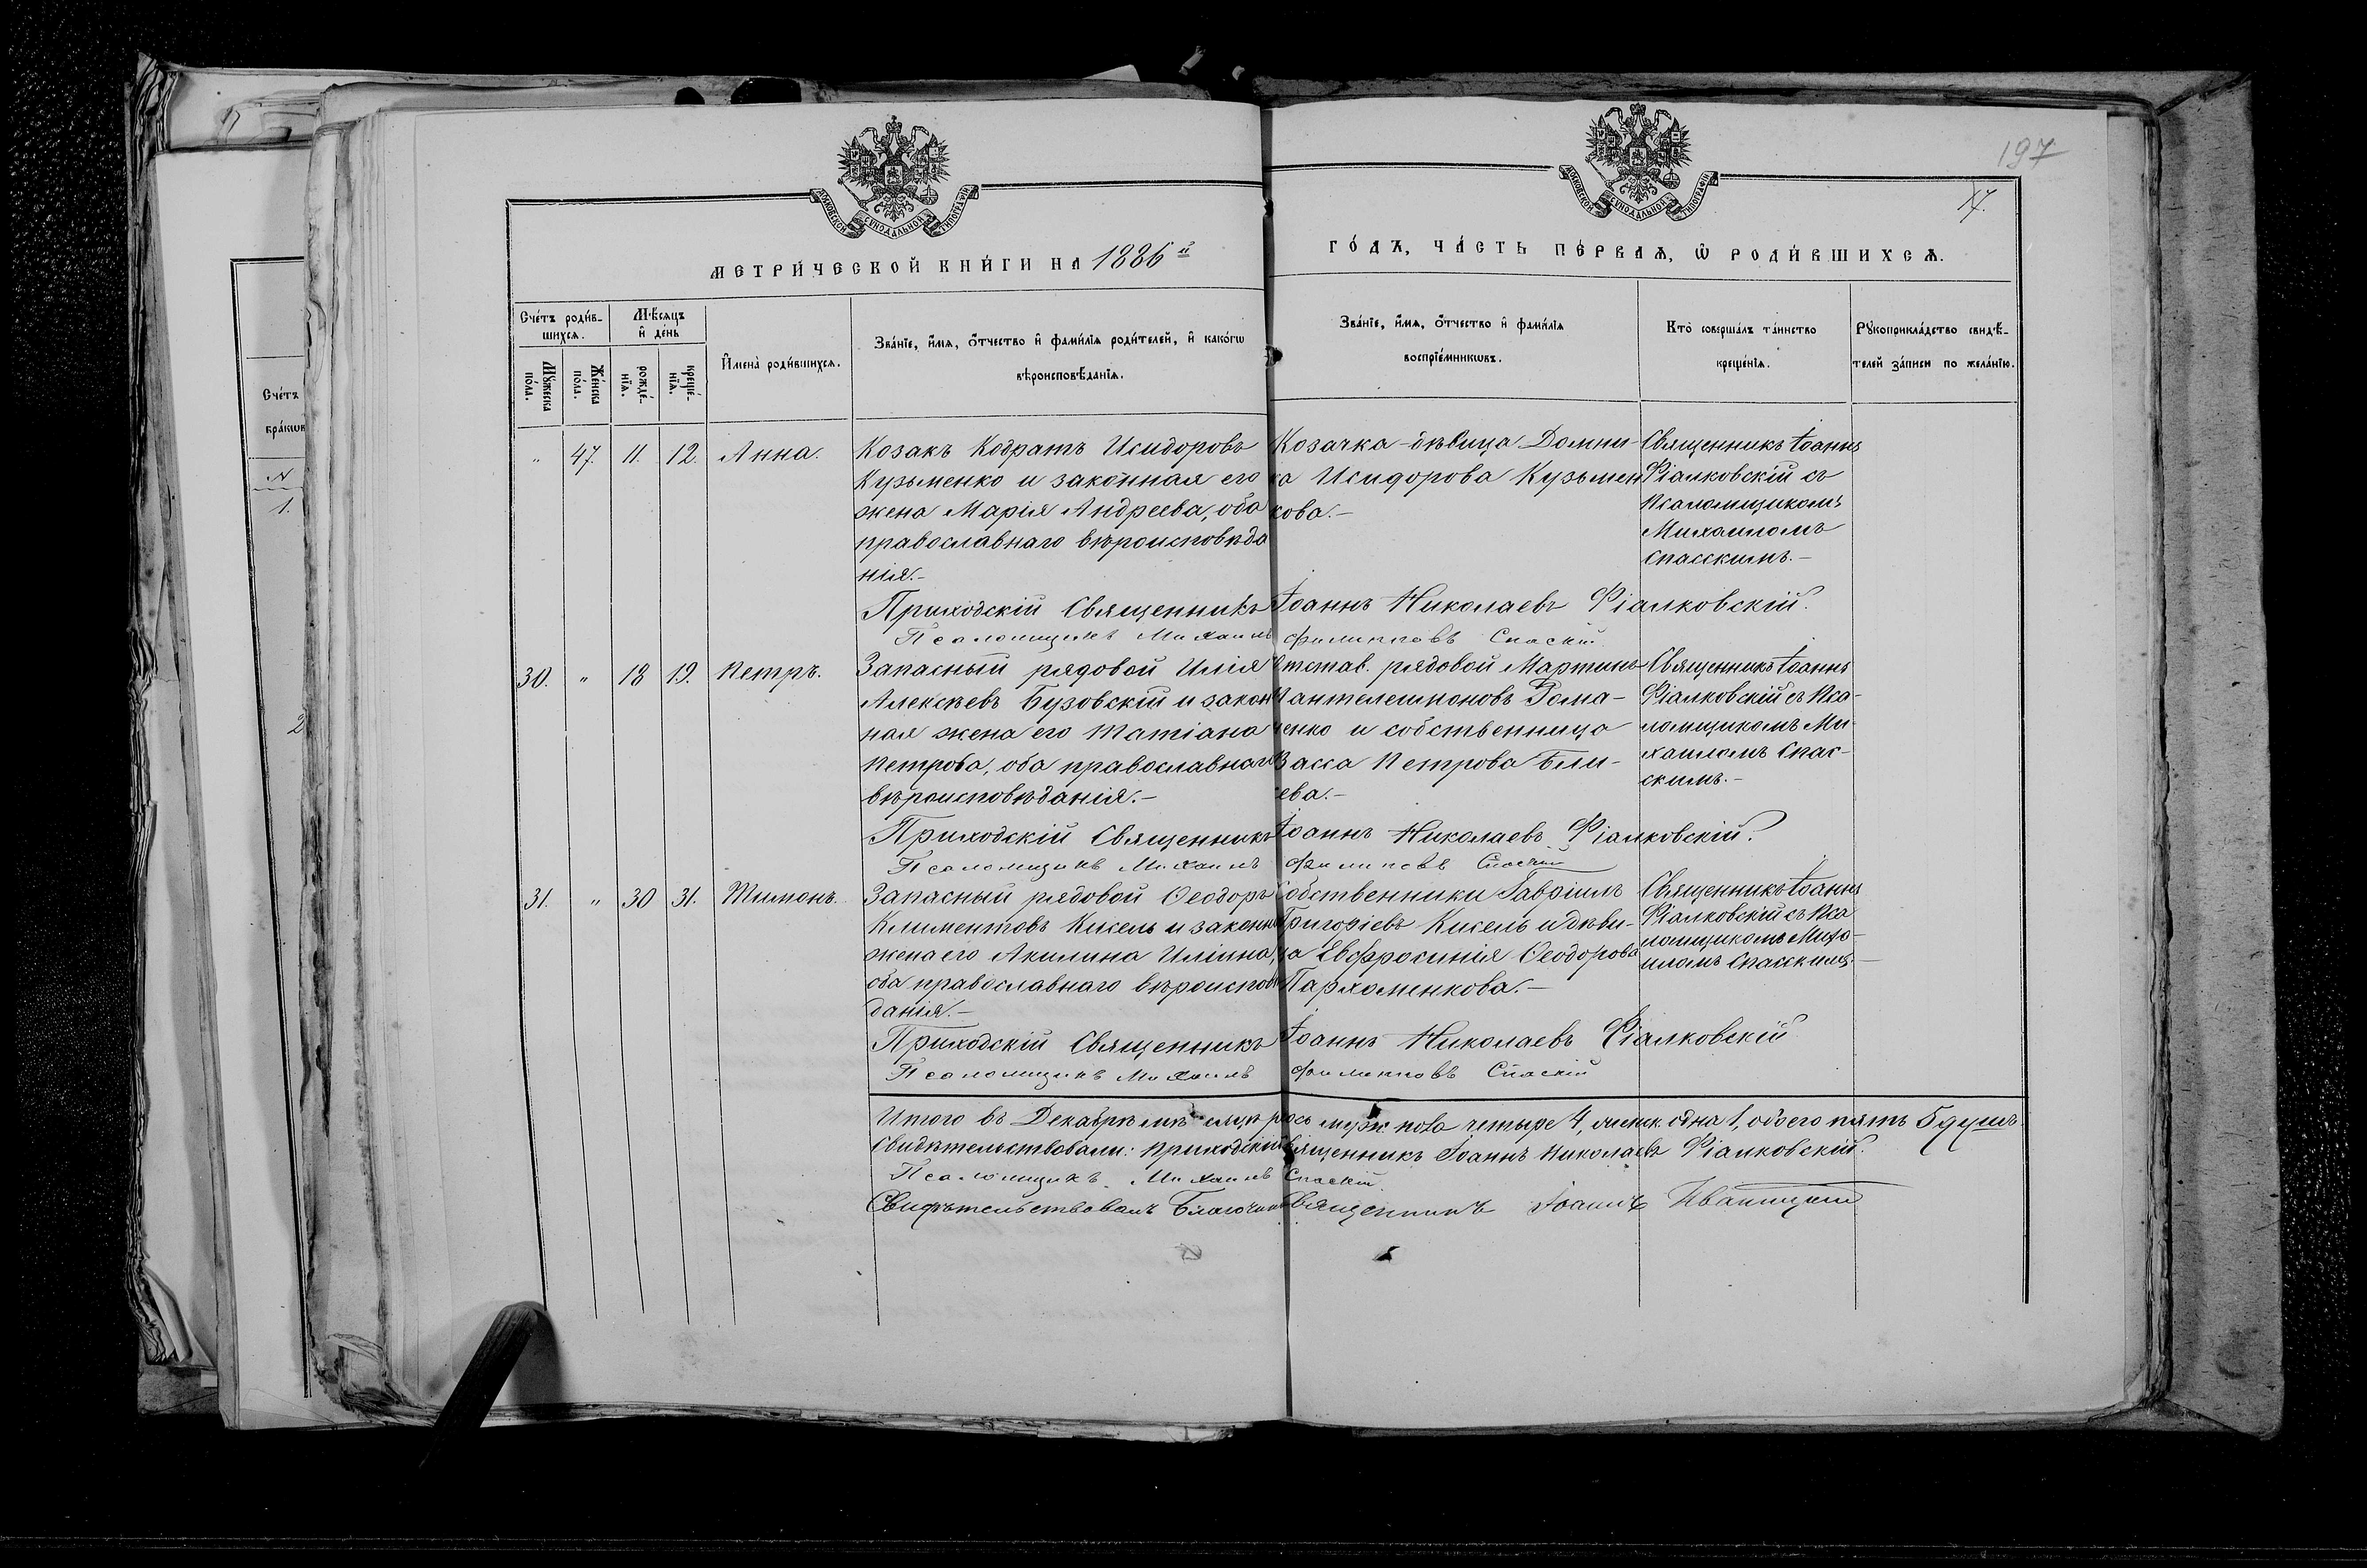 197
17.
МЕТРИЧЕСКОЙ КНИГИ НА 1886 й
ГОДЪ, ЧАСТЬ ПЕРВАЯ, Ѡ РОДИВШИХСЯ.
МОСКОВСКОЙ СѴНОДАЛЬНОЙ ТИПОГРАФІИ
МОСКОВСКОЙ СѴНОДАЛЬНОЙ ТИПОГРАФІИ
Счетъ родив-
шихся.
Мужеска пола.
Женска пола.
Мѣсяцъ
и день
рожде-
нія.
креще-
нія.
Имена родившихся.
Званіе, имя, отчество и фамилія родителей, и какогѡ
вѣроисповѣданія.
Званіе, имя, отчество и фамилія
воспріемникѡвъ.
Кто совершалъ таинство
крещенія.
Рукоприкладство свидѣ-
телей записи по желанію.
Счетъ
бракѡв
N
1.
2
" 47. 11. 12. Анна.
Козакъ Кодратъ Исидоровъ
Кузьменко и законная его
жена Марія Андреева, оба
православнаго вѣроисповѣда
нія.-
Козачка-дѣвица Домни-
ка Исидорова Кузьмен
кова.-
Священникъ Іоаннъ
Фіалковскій съ
Псаломщикомъ
Михаиломъ
Спасскимъ.-
Приходскій Священникъ Іоаннъ Николаевъ Фіалковскій.
Псаломщикъ Михаилъ Филипповъ Спаскій
30. " 18 19. Петръ.
Запасный рядовой Илія
Алексѣевъ Бузовскій и закон
ная жена его Татіана
Петрова, оба православнаго
вѣроисповѣданія.-
Отстав. рядовой Мартинъ
Пантелеимоновъ Рома-
ченко и собственница
Васса Петрова Ели-
сева.-
Священникъ Іоаннъ
Фіалковскій съ Пса-
ломщикомъ Ми-
хаиломъ Спас-
скимъ.-
Приходскій Священникъ Іоаннъ Николаевъ Фіалковскій.
Псаломщикъ Михаилъ Филиповъ Спаскій
31. " 30 31. Тимонъ.
Запасный рядовой Ѳеодоръ
Климентовъ Кисель и законна
жена его Акилина Иліина,
оба православнаго вѣроисповѣ
данія.-
Собственники Гавріилъ
Григоріевъ Кисель и дѣви-
ца Евфросинія Ѳеодорова
Пархоменкова.-
Священникъ Іоаннъ
Фіалковскій съ Пса
ломщикомъ Миха-
иломъ Спасскимъ.-
Приходскій Священникъ Іоаннъ Николаевъ Фіалковскій
Псаломщикъ Михаилъ Филипповъ Спаскій
Итого въ Декабрѣ мѣсяцѣ рось муж. пола четыре 4, женск. одна 1, обоего пять 5 душъ.
Свидѣтельствовали: Приходскій Священникъ Іоаннъ Николаевъ Фіалковскій.
Псаломщикъ Михаилъ Спаскій
Свидѣтельствовалъ Благочин Священникъ Іоаннъ